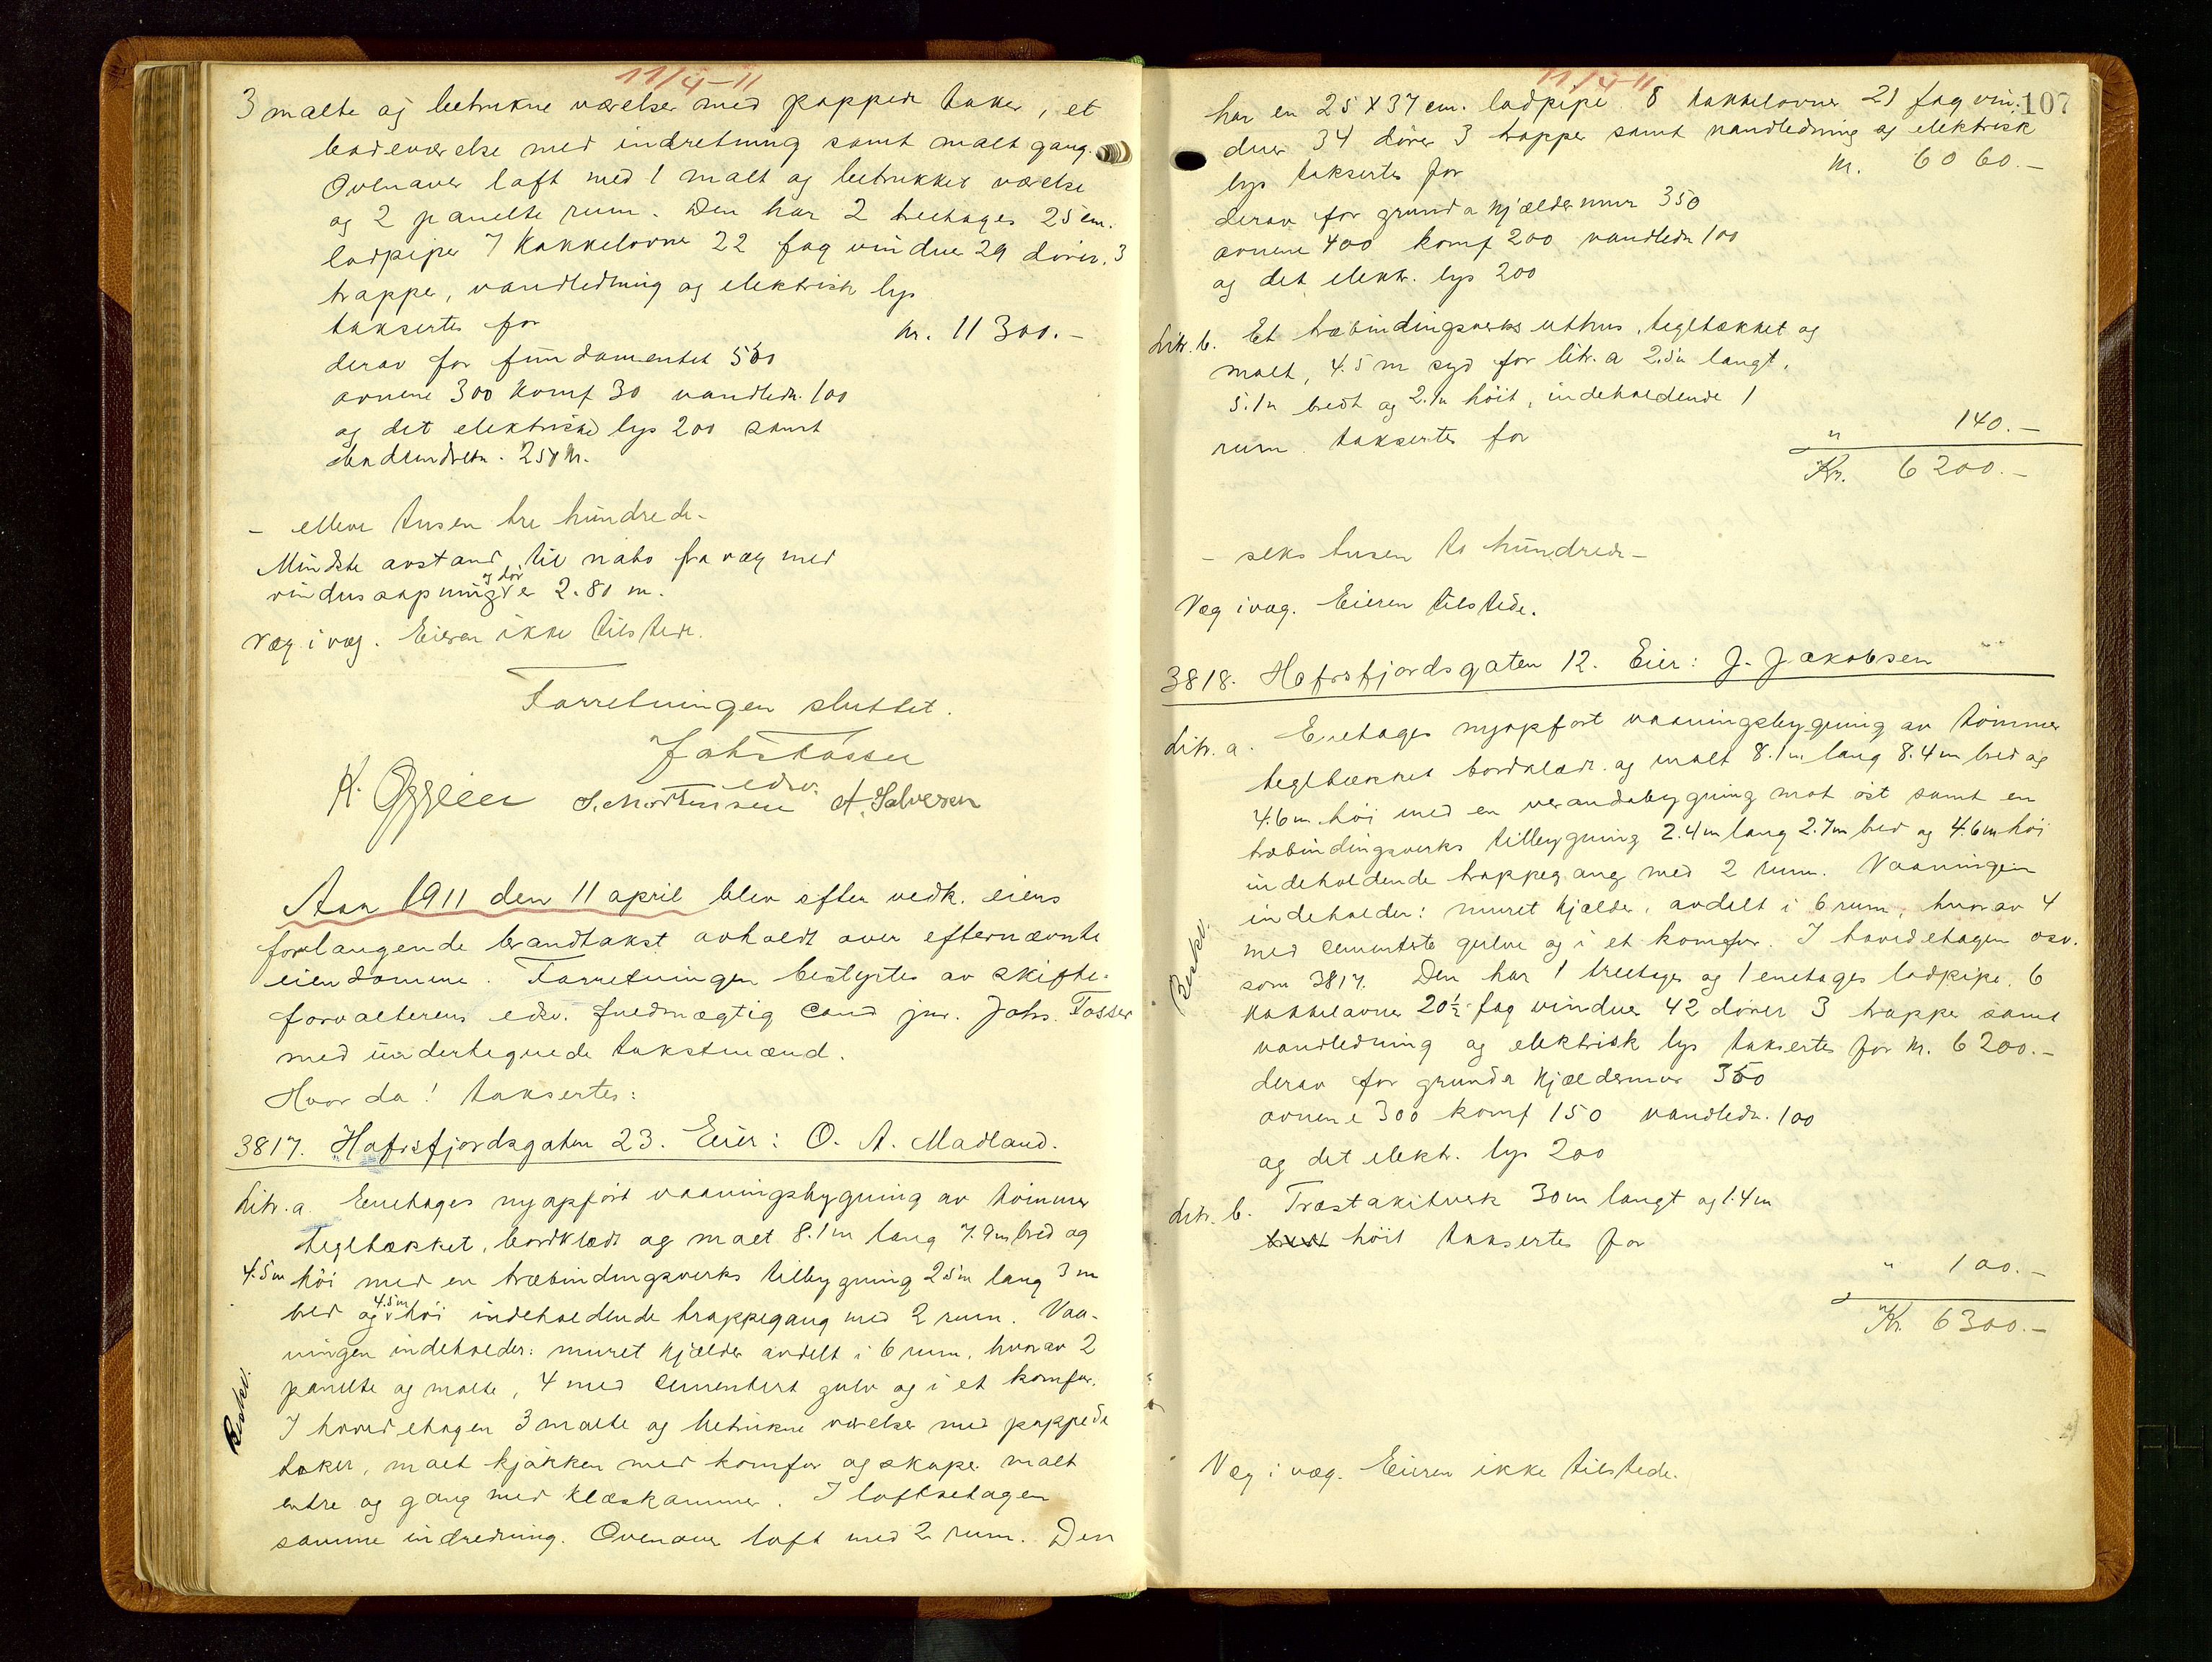 11/4-11
3 malte og betrukne værelser med pappede taker, et
badeværelse med indretning samt malt gang.
Ovenover loft med 1 malt og betrukket værelse
og 2 panelte rum. Den har 2 treetages 25 cm.
ladpiper 7 kakkelovne 22 fag vinduer 29 dører. 3
trapper, vandledning og elektrisk lys
taksertes for kr. 11 300.-
derav for fundamentet 550
ovnene 300 komf 30 vandledn. 100
og det elektriske lys 200 samt
badeindretn. 250 kr.
- elleve tusen tre hundrede -
Mindste avstand til nabo fra væg med
vindusaapning og dør er 2.80 m.
Væg i væg. Eieren ikke tilstede.
Forretningen sluttet.
Johs Tosser
edsv.
K. Oggeier S. Mortensen A. Salvesen
Aar 1911 den 11 april blev efter vedk. eiers
forlangende brandtakst avholdt over efternævnte
eiendomme. Forretningen bestyrtes av skifte-
forvalterens edsv. fuldmægtig cand jur. Johs. Tosser
med undertegnede takstmænd.
Hvor da! taksertes:
3817. Hafrsfjordsgaten 23. Eier: O. A. Madland.
Litr. a. Eenetages nyopført vaaningsbygning av tømmer
tegltækket, bordklædt og malt 8.1 m lang 7.9 m bred og
4.5 m høi med en træbindingsverks tilbygning 2.5 m lang 3 m
bred og 4.5 m høi indeholdende trappegang med 2 rum. Vaa-
ningen indeholder: muret kjælder avdelt i 6 rum, hvorav 2
panelte og malte, 4 med cementert gulv og i et komfur.
I hovedetagen 3 malte og betrukne værelser med pappede
taker, malt kjøkken med komfur og skape malt
entre og gang med klæskammer. I loftsetagen
samme indredning. Ovenover loft med 2 rum. Den
Beskv.
11/4-11
107
har en 25 x 37 cm. ladpipe 8 kakkelovne 21 fag vin-
duer 34 dører 3 trapper samt vandledning og elektrisk
lys taksertes for kr. 6060.-
derav for grund a kjældermur 350
ovnene 400 komf 200 vandledn 100
og det elektr. lys 200
Litr. b. Et træbindingsverks uthus, tegltækket og
malt, 4.5 m syd for litr. a 2.5 m langt,
5.1 m bredt og 2.1 m høit, indeholdende 1
rum taksertes for " 140.-
Kr. 6200.-
- seks tusen to hundrede -
Væg i væg. Eieren tilstede.
3818. Hafrsfjordsgaten 12. Eier: J. Jakobsen
Litr. a. Enetages nyopført vaaningsbygning av tømmer
tegltækket bordklædt og malt 8.1 m lang 8.4 m bred og
4.6 m høi med en verandabygning mot øst samt en
træbindingsverks tilbygning 2.4 m lang 2.7 m bred og 4.6 m høi
indeholdende trappegang med 2 rum. Vaaningen
indeholder: muret kjælder, avdelt i 6 rum, hvorav 4
med cementerte gulve og i et komfur. I hovedetagen osv.
som 3817. Den har 1 treetages og 1 enetages ladpipe. 6
kakkelovne 20½ fag vinduer 42 dører 3 trapper samt
vandledning og elektrisk lys taksertes for kr. 6200.-
derav for grund a kjældermur 350
ovnene 300 komf 150 vandledn. 100
og det elektr. lys 200
Beskv.
Litr. b. Træstakitverk 30 m langt og 1.4 m
høit taksertes for
" 100.-
Kr. 6300.-
Væg i væg. Eieren ikke tilstede.